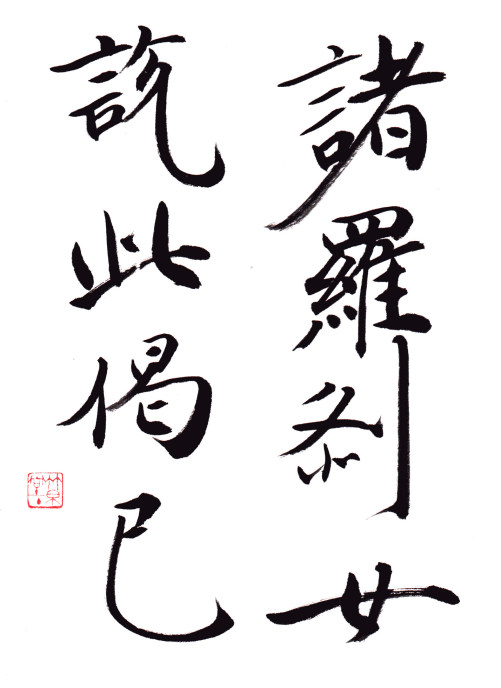 諸羅刹女
説此偈已